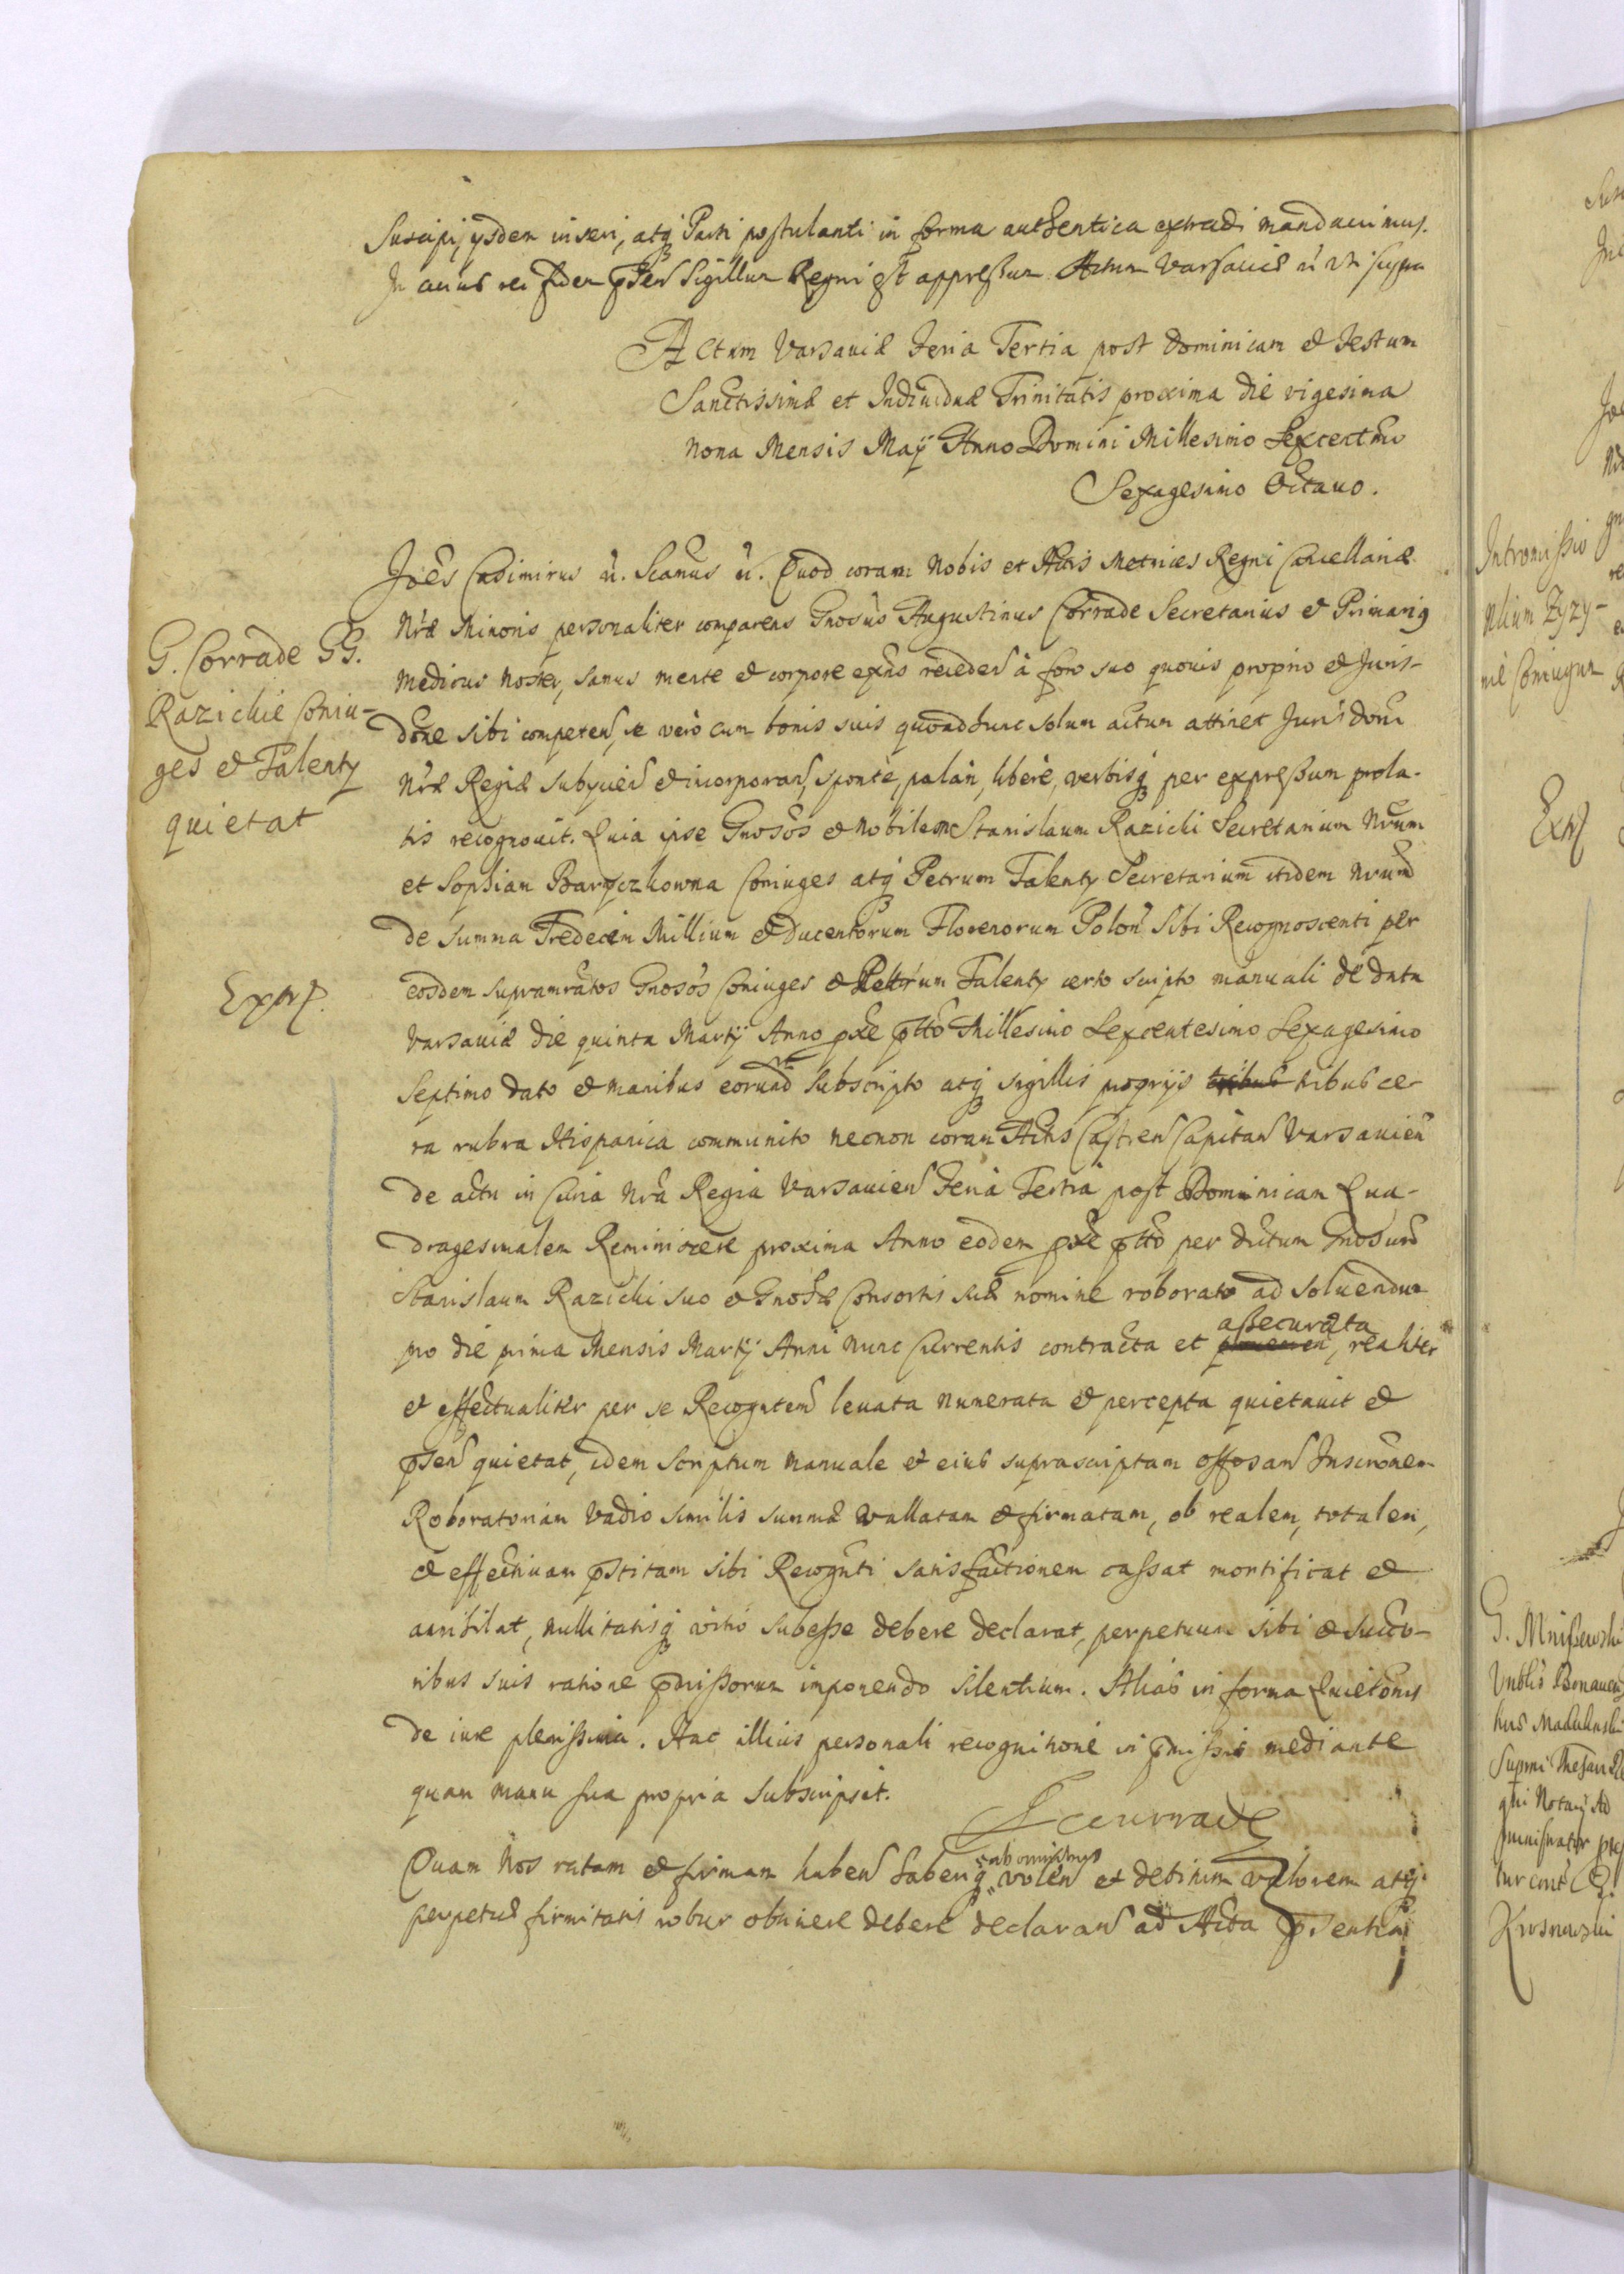 Suscipi ijsdem inseri, atq3 Parti postulanti in forma authentica extradi mandauimus.
In cuius rei fidem pñsen Sigillum Regni est appressum Actum Varsauiæ ñ vti supra
Actum Varsauiæ Feria Tertia post Dominicam et Festum
Sanctissimæ et Indiuiduæ Trinitatis proxima die vigesima
nona Mensis Maÿ Anno Domini Millesimo Sexcectmo
Sexagesimo Octauo.
G. Corrade GG.
Razickie Coniu-
ges et Talenty
quietat
Extr.
Joẽs Casimirus ñ. Scamus ñ. Quod coram Nobis et Actis Metrices Regni Cancellariæ
Nræ Minoris personaliter comparens Gnosus Augustinus Corrade Secretarius et Primarig
Medicus Noster, sanus mente et corpore exñs recedeñ à foro suo quouis proprio et Juris-
done sibi competeñ, se vero cum bonis suis quoad hunc solum actum attinet Jurisdoni
Nræ Regiæ subijcieñ et incorporañ, sponte, palàm, libere, verbisq3 per expressum prola-
tis recognouit. Quia ipse Gnosos et Nobilem Stanislaum Razicki Secretarium Nrum
et Sophiam Baryczkowna Coniuges atq3 Petrum Talenty Secretarium itidem Nrum
de summa Tredecim Millium et Ducentorum Florenorum Poloñ Sibi Recognoscenti per
eosdem supramratos Gnosos Coniuges et Petrum Talenty certo scripto manuali de data
Varsauiæ die quinta Martÿ Anno pxe ptto Millesimo Sexcentesimo Sexagesimo
Septimo dato et manibus eorund subscripto atq3 sigillis proprijs tribus tribus ce-
ra rubra Hispanica communito necnon coram Actis Castreñ Capitañ Varsauieñ
de actu in Curia Nra Regia Varsauieñ Feria Tertia post Dominicam Qua-
dragesimalem Reminiscere proxima Anno eodem pxe ptto per dictum Gnosum
Stanislaum Razicki suo et Gnosæ Consortis suæ nomine roborato ad soluendum
assecurata
pro die prima Mensis Martÿ Anni nunc Currentis contracta et realiter
et effectualiter per se Recogntem leuata numerata et percepta quietauit et
pseñ quietat, idem Scriptum manuale et eius suprascriptam offosam Inscronem
Roboratoriam vadio similis summæ vallatam et firmatam, ob realem, totalem,
et effectiuam pstitam sibi Recognti satisfactionem cassat mortificat et
annihilat, nullitatisq3 vitio subesse debere declarat, perpetuum sibi et succo-
ribus suis ratione pmissorum imponendo silentium. Alias in forma Quietonis
de iure plenissima. Hac illius personali recognitione in pmissis mediante
quam manu sua propria subscripsit.
Quam Nos ratam et firmam habeñ haberiq3 ab omnibus voleñ et debitum valorem atq3
perpetuæ firmitatis robur obtinere debere declarañ ad Acta psentia
Intromissio
Extr
G. Mniszewski
Krosnowski